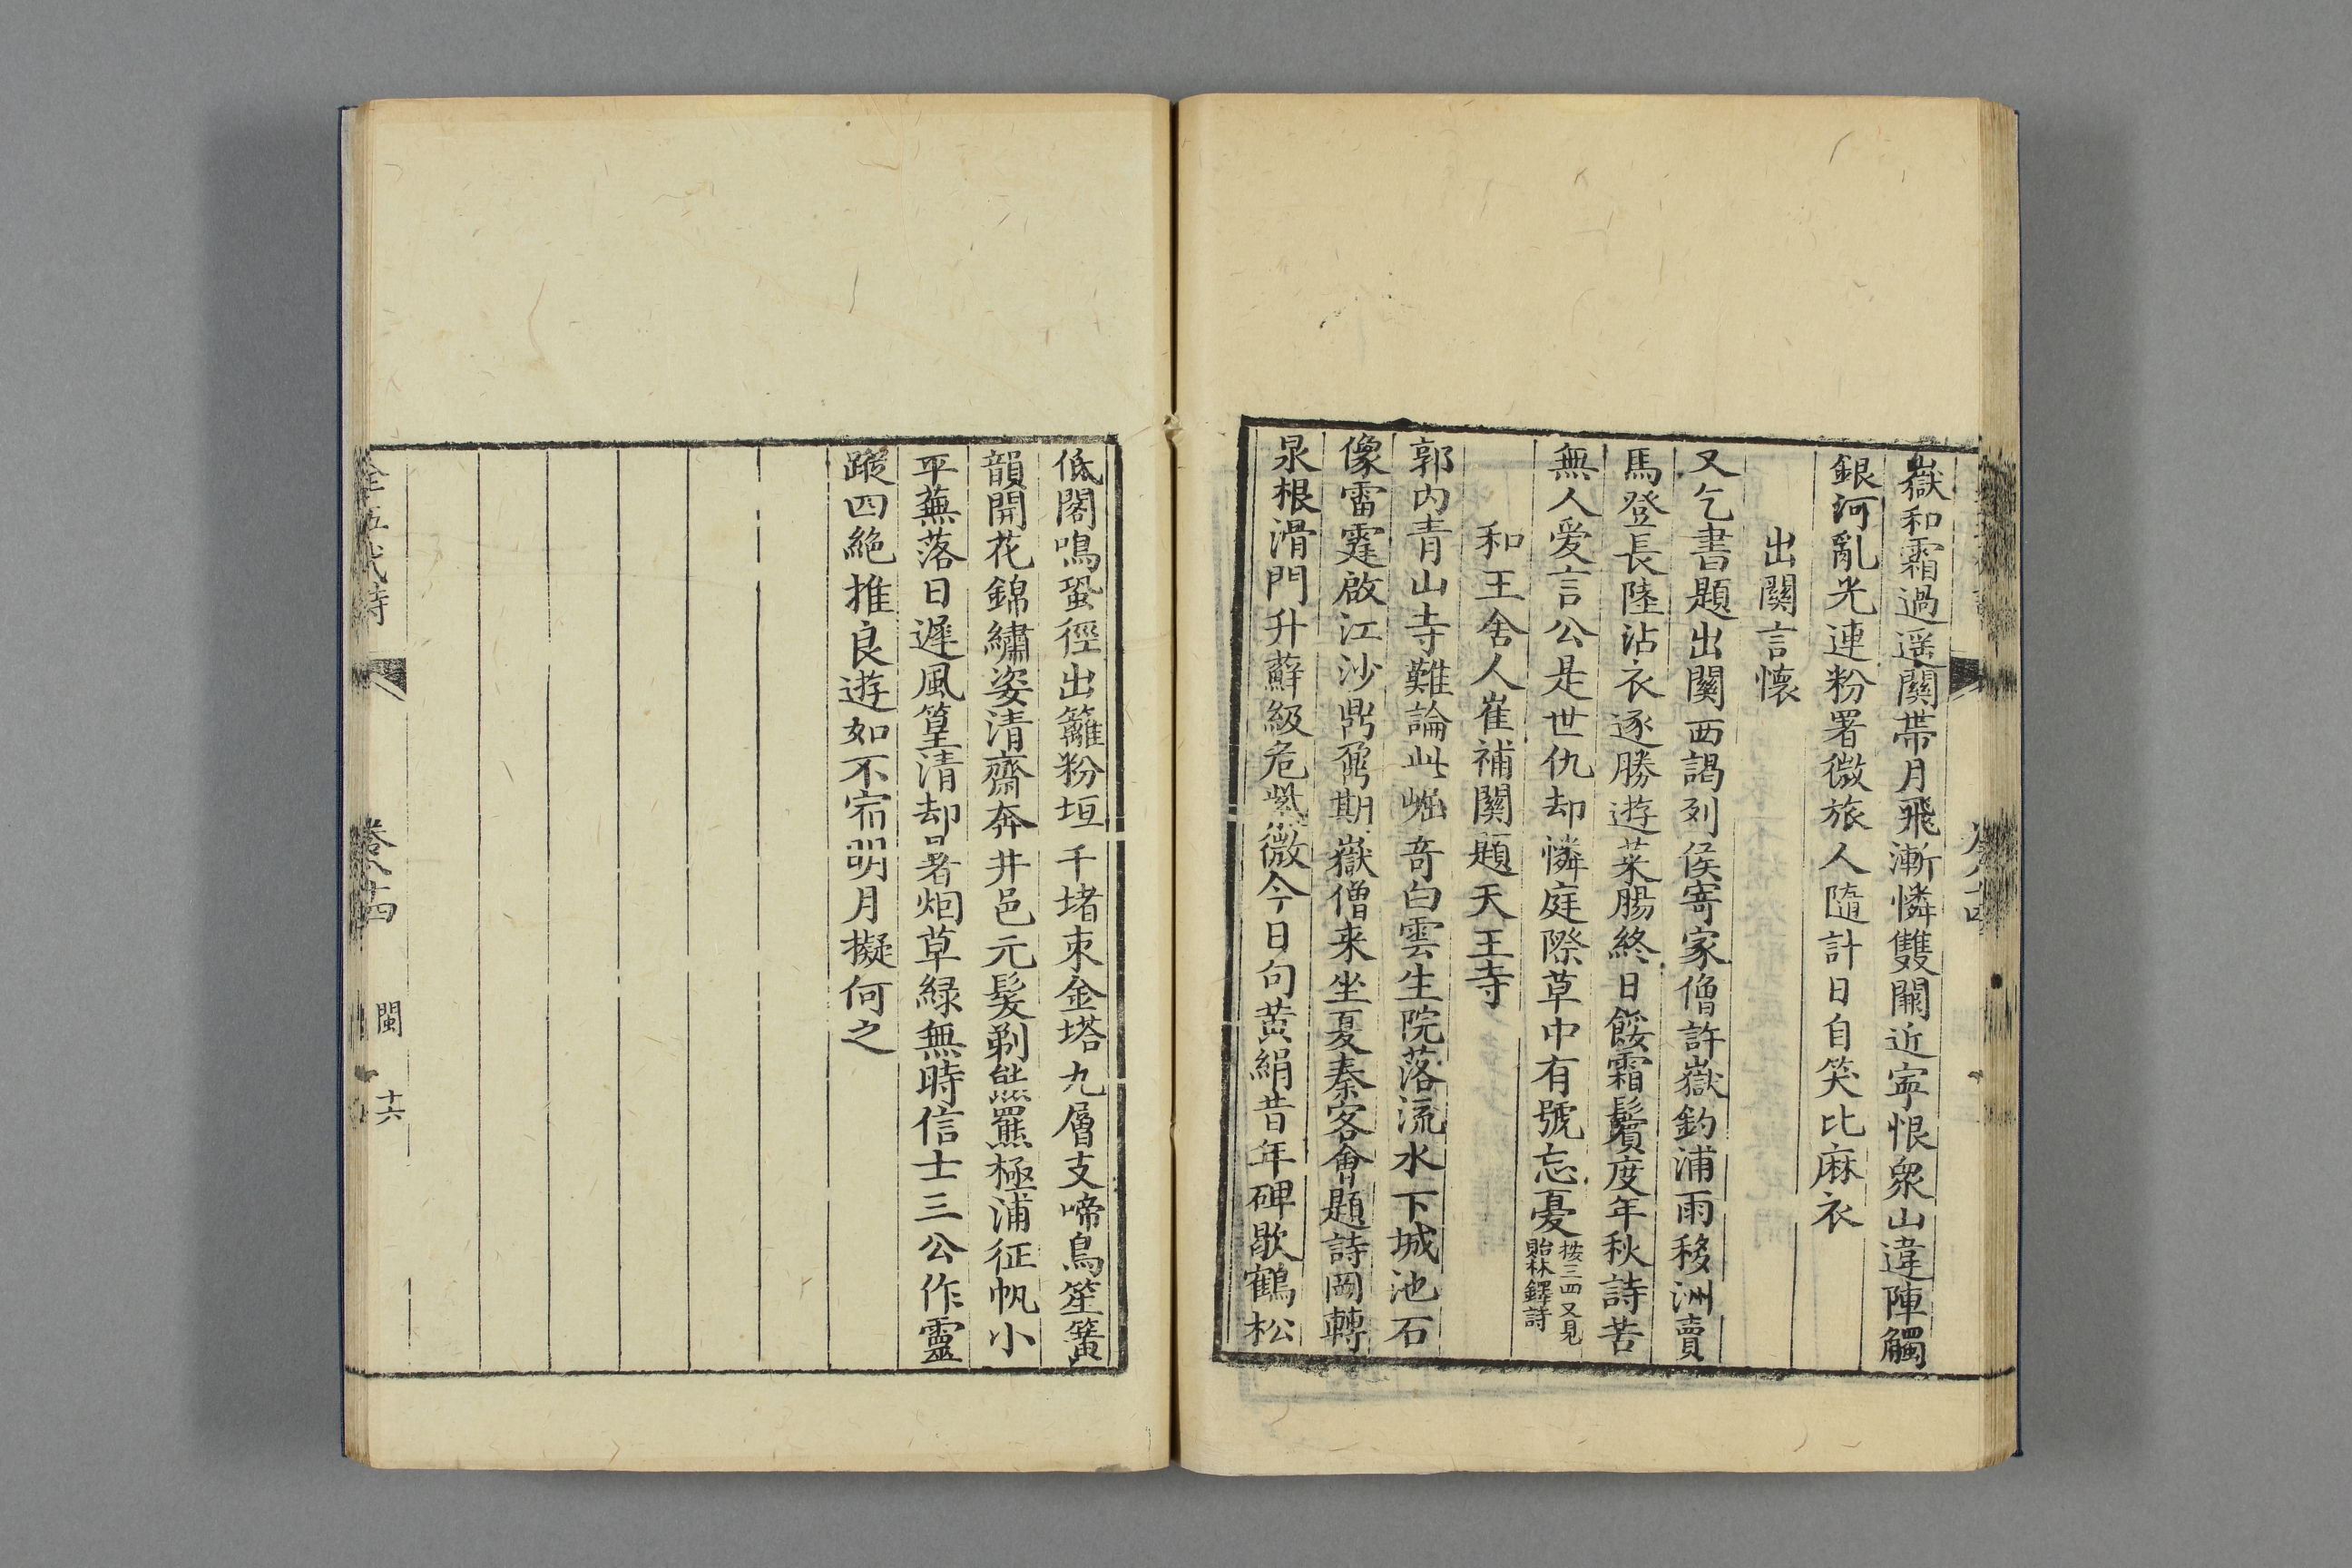 嶽和霜過遥關帶月飛漸憐雙闕近寧恨衆山違陣觸
銀河亂光連粉署微旅人隨計日自笑比麻衣
出關言懷
又乞書題出關西謁列侯寄家僧許嶽釣浦雨移洲賣
馬登長陸沾衣逐勝遊菜腸終日餒霜鬢度年秋詩苦
無人愛言公是世仇却憐庭際草中有號忘憂
按三四又見
貽林鐸詩
和王舍人崔補闕題天王寺
郭内青山寺難論此崛奇白雲生院落流水下城池石
像雷霆啟江沙鼎鼐期嶽僧来坐夏秦客會題詩岡轉
泉根滑門升蘚級危紫微今日句黄絹昔年碑歇鶴松
低閣鳴蛩徑出籬粉垣千堵束金塔九層支啼鳥笙簧
韻開花錦繡姿清齋奔井邑元髮剃熊羆極浦征帆小
平蕪落日遲風篁清却暑烟草緑無時信士三公作靈
蹤四絶推良遊如不宿明月擬何之
全五代詩
卷八十四
閩
十六